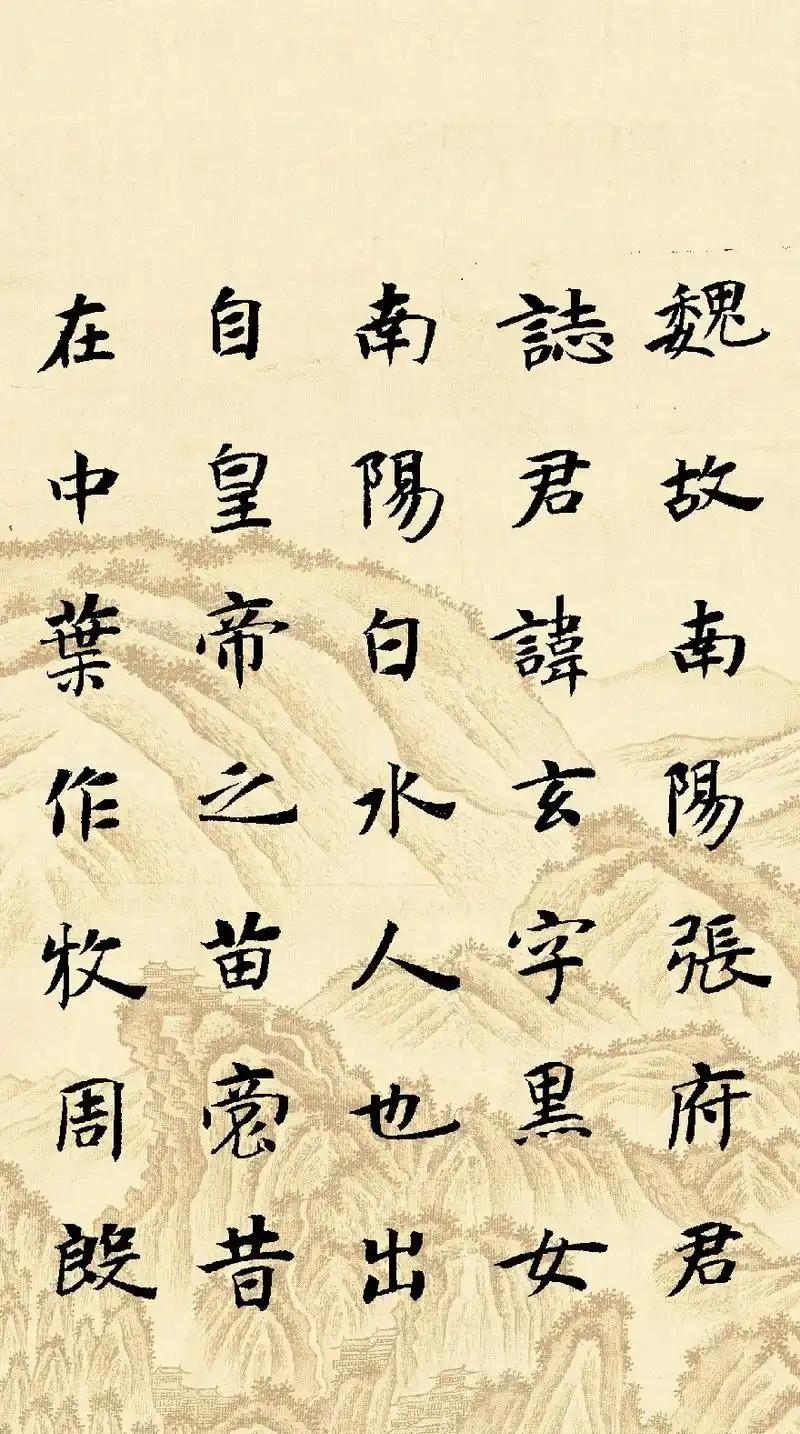 魏故南陽張府君
誌君諱玄字黑女
南陽白水人也出
自皇帝之苗裔昔
在中葉作牧周殷